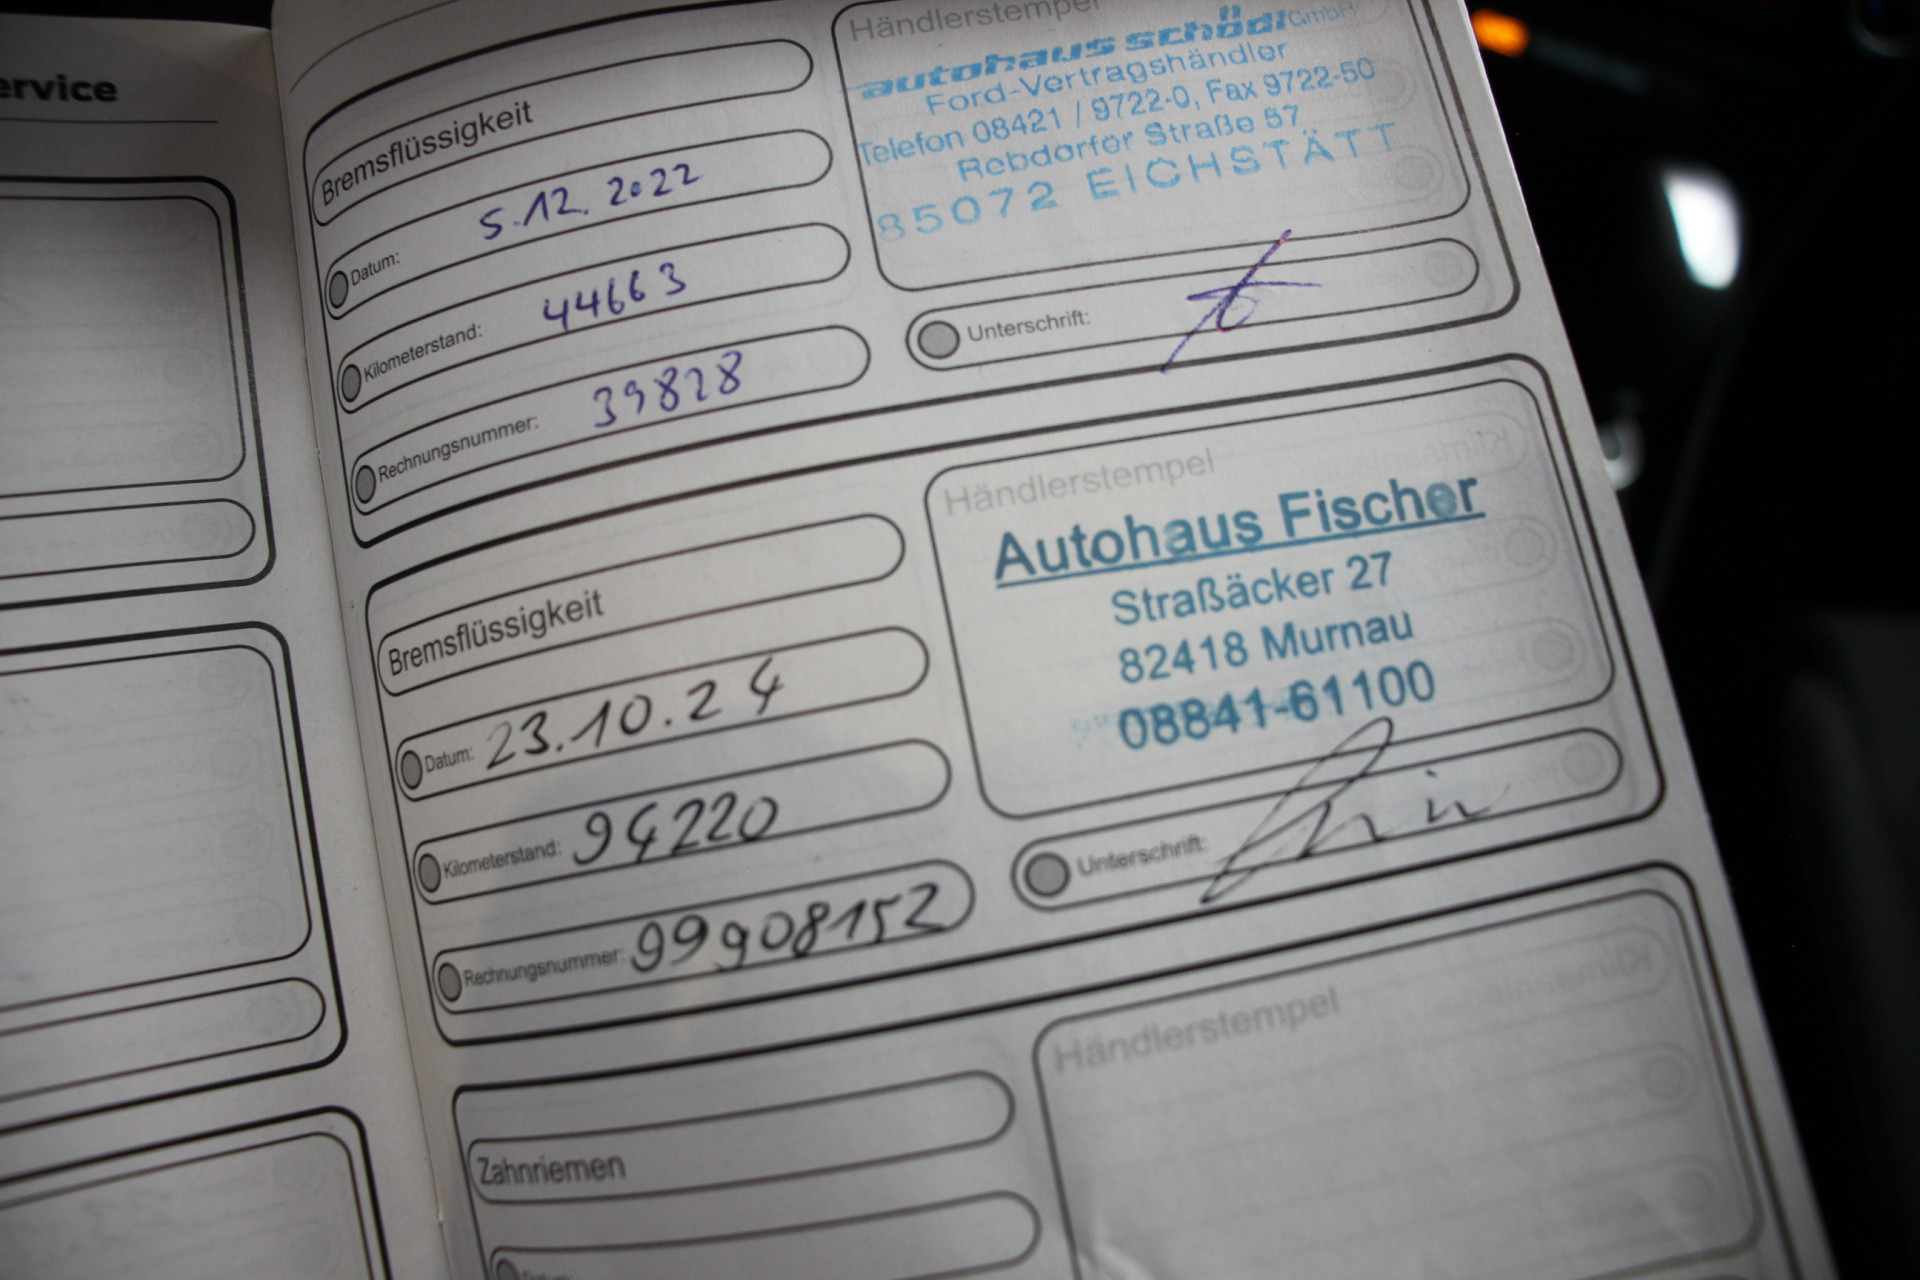 ervice
Händlerstempel
autohaus schödl GmbH
Ford-Vertragshändler
Telefon 08421 / 9722-0, Fax 9722-50
Rebdorfer Straße 57
85072 EICHSTÄTT
Bremsflüssigkeit
Datum: 5.12.2022
Kilometerstand: 44663
Rechnungsnummer: 39828
Unterschrift:
Händlerstempel
Autohaus Fischer
Straßäcker 27
82418 Murnau
08841-61100
Bremsflüssigkeit
Datum: 23.10.24
Kilometerstand: 94220
Rechnungsnummer: 99908152
Unterschrift:
Händlerstempel
Zahnriemen
Datum